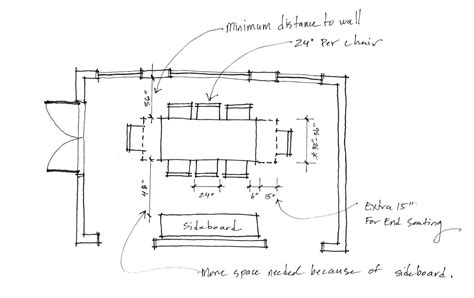 Minimum distance to wall
24" Per chair
36"
* 30"-36"
48"
24"
6"
15"
Extra 15"
For End Seating
Sideboard
More space needed because of sideboard.